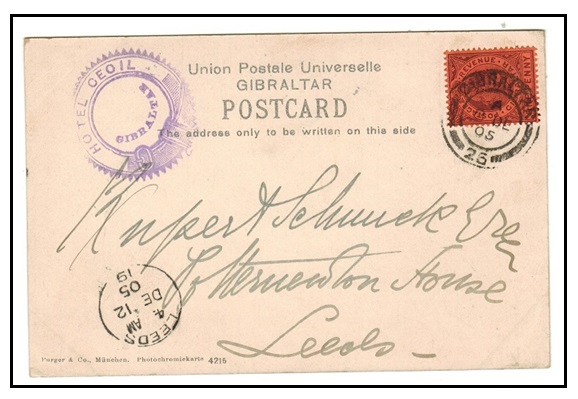 HOTEL CECIL
GIBRALTAR
Union Postale Universelle
GIBRALTAR
POSTCARD
The address only to be written on this side
REVENUE
GIBRALTAR
A
05
26
Rupert Schunck Esq
Potternewton House
Leeds
LEEDS
4 AM
DE 12
05
19
Purger & Co., München. Photochromiekarte 4216